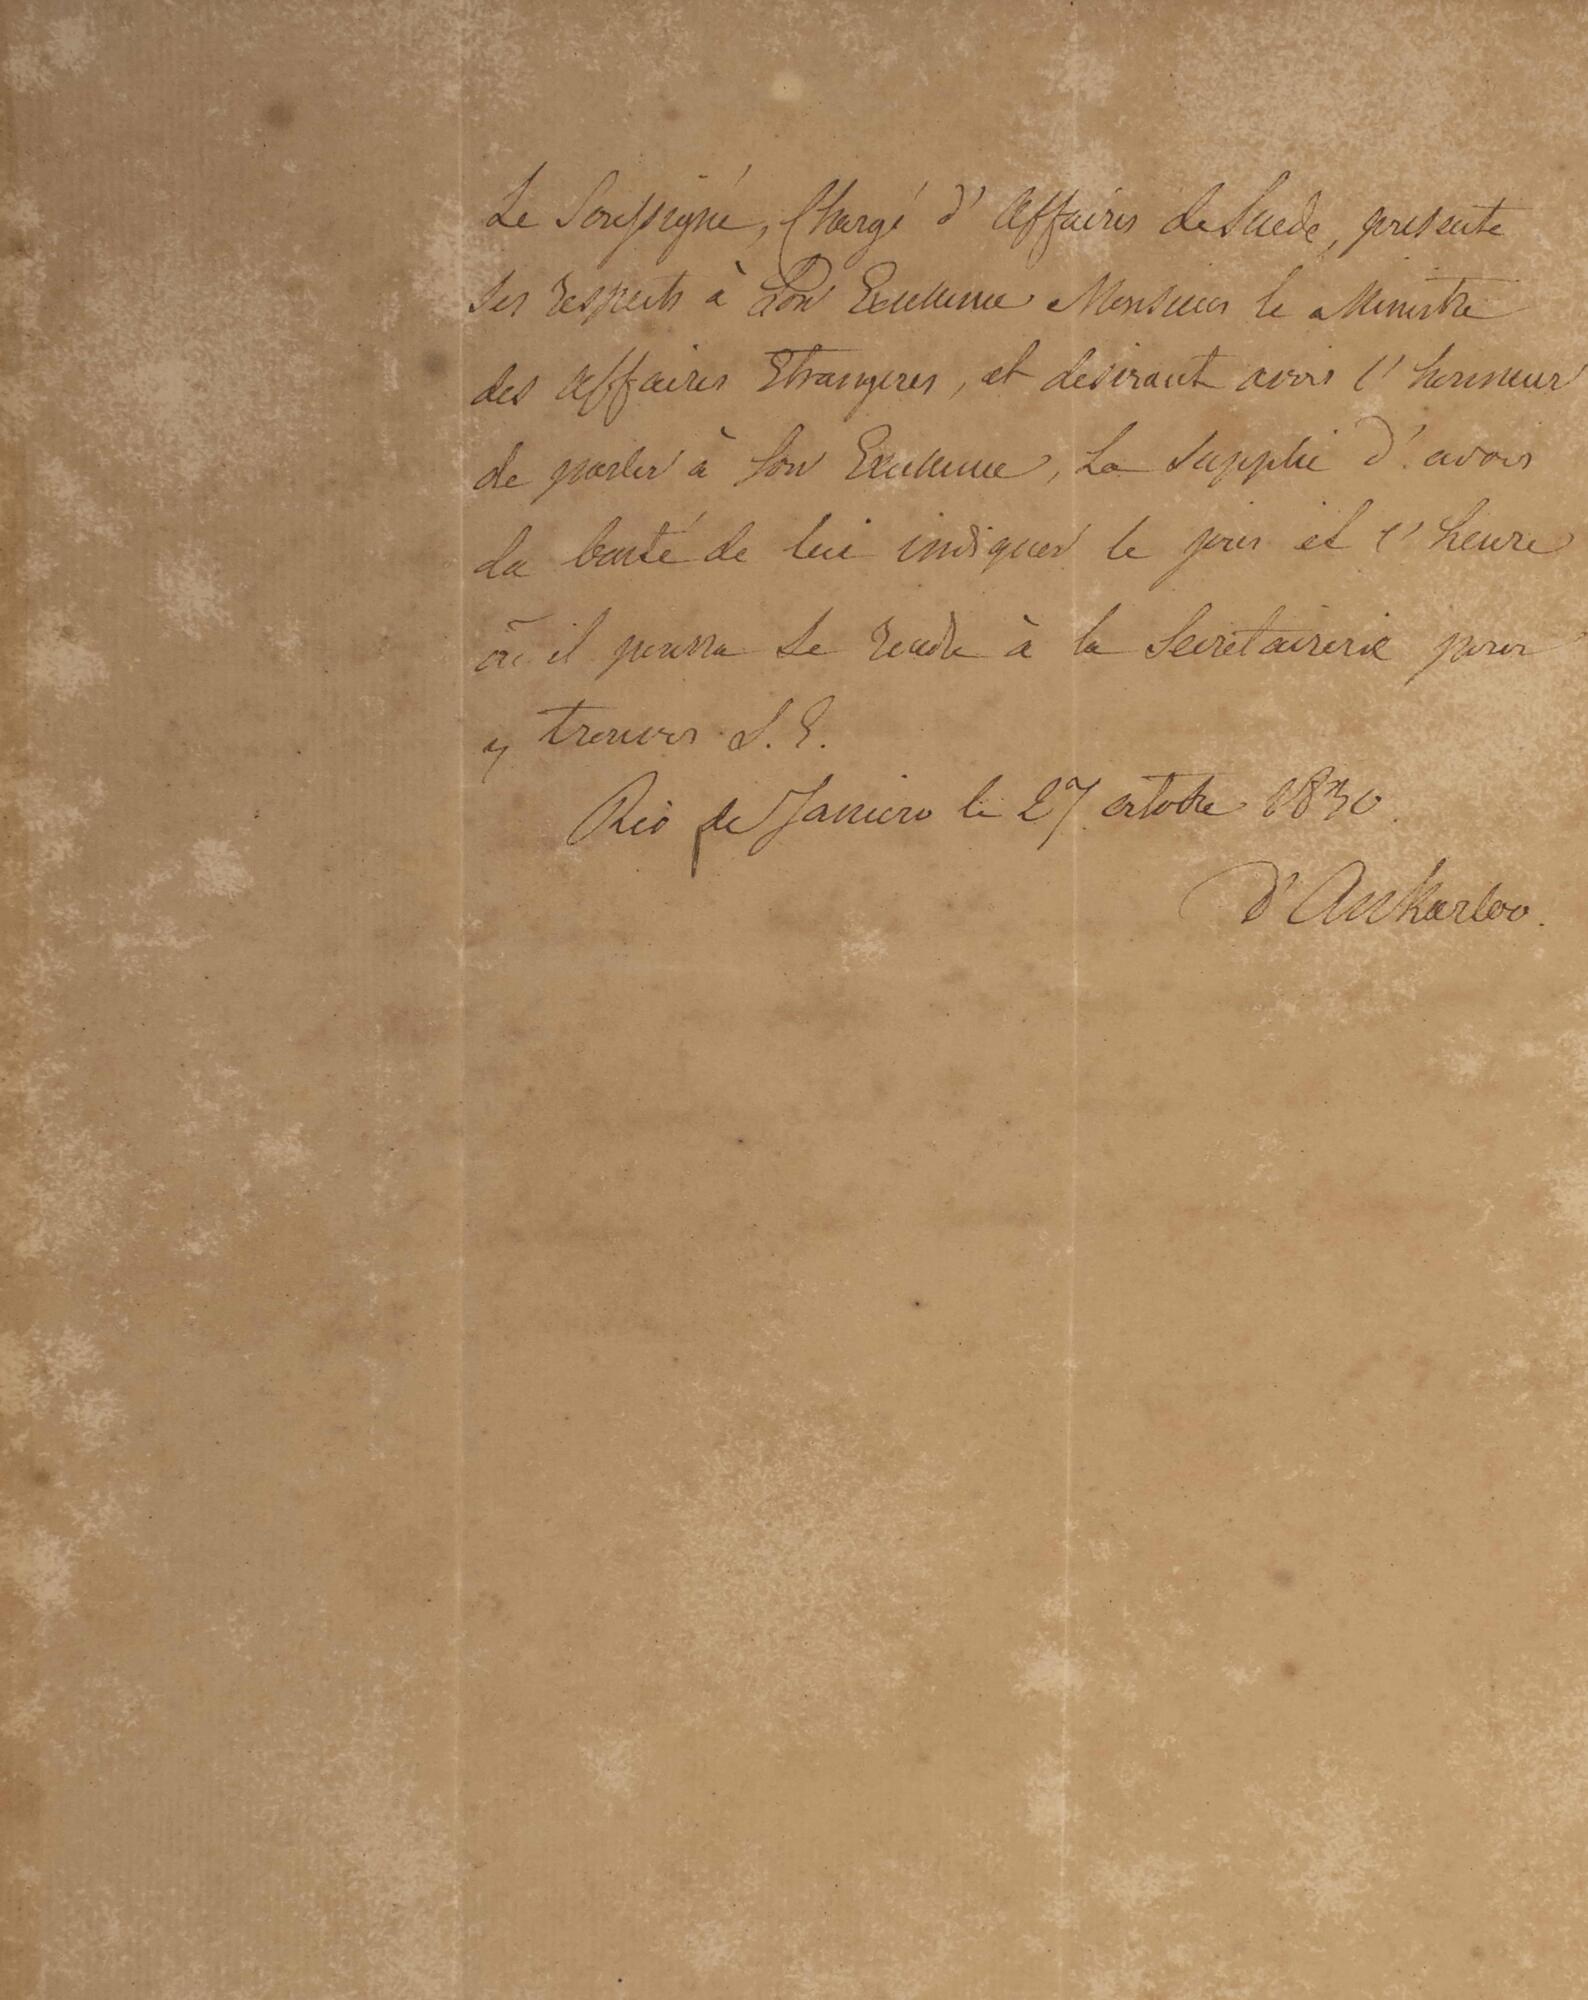 Le Soussigné, Chargé d'Affaires de Suede, presente
ses respects à Son Excellence Monsieur le Ministre
des Affaires Etrangeres, et desirant avoir l'honneur
de parler à Son Excellence, La supplie d'avoir
la bonté de lui indiquer le jour et l'heure
où il pourra se rendre à la Secretairerie pour
y trouver S. E.
Rio de Janeiro le 27 octobre 1830.
d'Ankarloo.